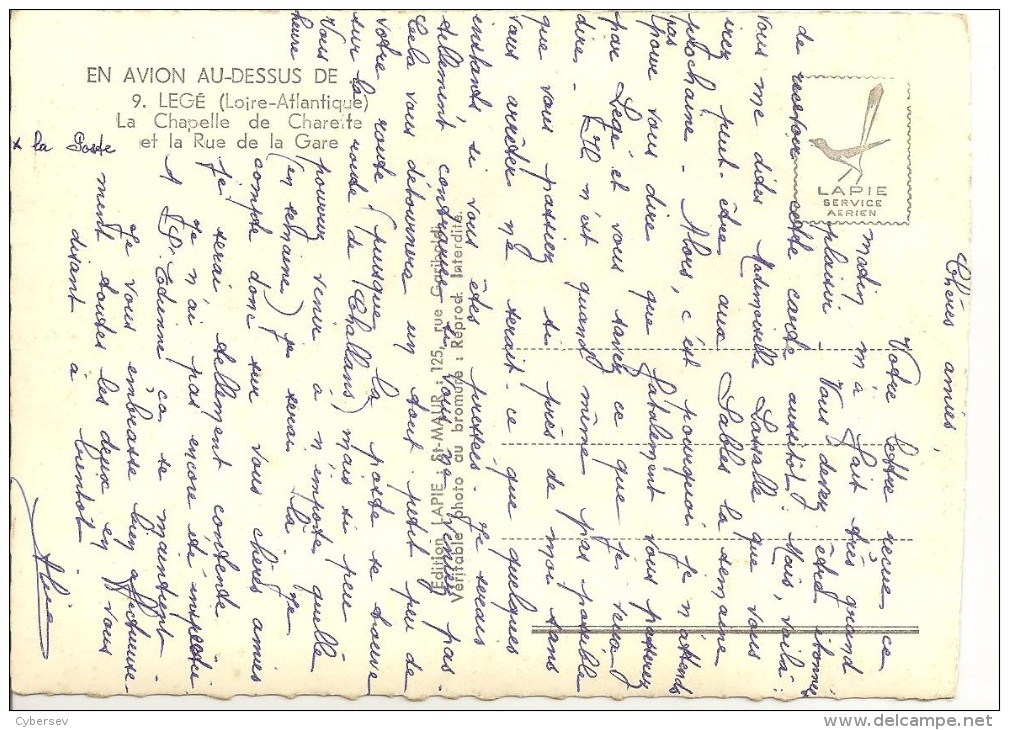 EN AVION AU-DESSUS DE ...
9. LEGÉ (Loire-Atlantique)
La Chapelle de Charette
et la Rue de la Gare
LAPIE
SERVICE
AERIEN
Edition LAPIE : St-MAUR : 125, rue Garibaldi
Véritable photo au bromure : Reprod. Interdite.
Chères amies,
Votre lettre reçue ce
matin m'a fait très grand
plaisir. Vous devez être étonnées
de recevoir cette carte aussitôt. Mais, voilà :
vous me dites Mademoiselle Lassalle que vous
irez peut-être aux Sables la semaine
prochaine. Alors, c'est pourquoi je n'attends
pas
pour vous dire que fatalement vous passerez
par Legé et vous savez ce que je veux
dire. Il n'est quand même pas possible
que vous passiez si près de moi sans
vous arrêter ne serait-ce que quelques
instants si vous êtes pressées. Je serais
tellement contrariée si vous ne veniez pas.
Cela vous détournera un tout petit peu de
votre route (puisque la poste se trouve
sur la route de Challans) mais si peu.
Vous pouvez venir à n'importe quelle
heure (en semaine) je serai là. Je
compte donc sur vous chères amies
je serai tellement contente
Je n'ai pas encore été inspectée
A St Etienne ça se maintient
Je vous embrasse bien affectueuse-
ment toutes les deux en vous
disant à bientôt
Aline
x la Poste
Cybersev
www.delcampe.net